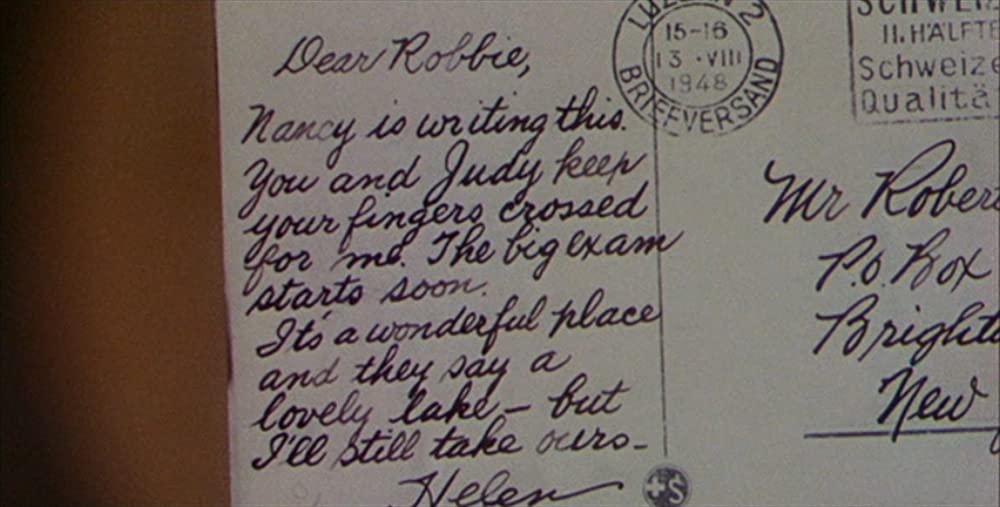 Dear Robbie,
Nancy is writing this.
You and Judy keep
your fingers crossed
for me. The big exam
starts soon.
It's a wonderful place
and they say a
lovely lake – but
I'll still take ours–
Helen
LUZERN 2
15-16
13 · VIII
1948
BRIEFVERSAND
SCHWEIZ
II. HÄLFTE
Schweize
Qualitä
Mr Rober
P.O. Box
Bright
New
+S